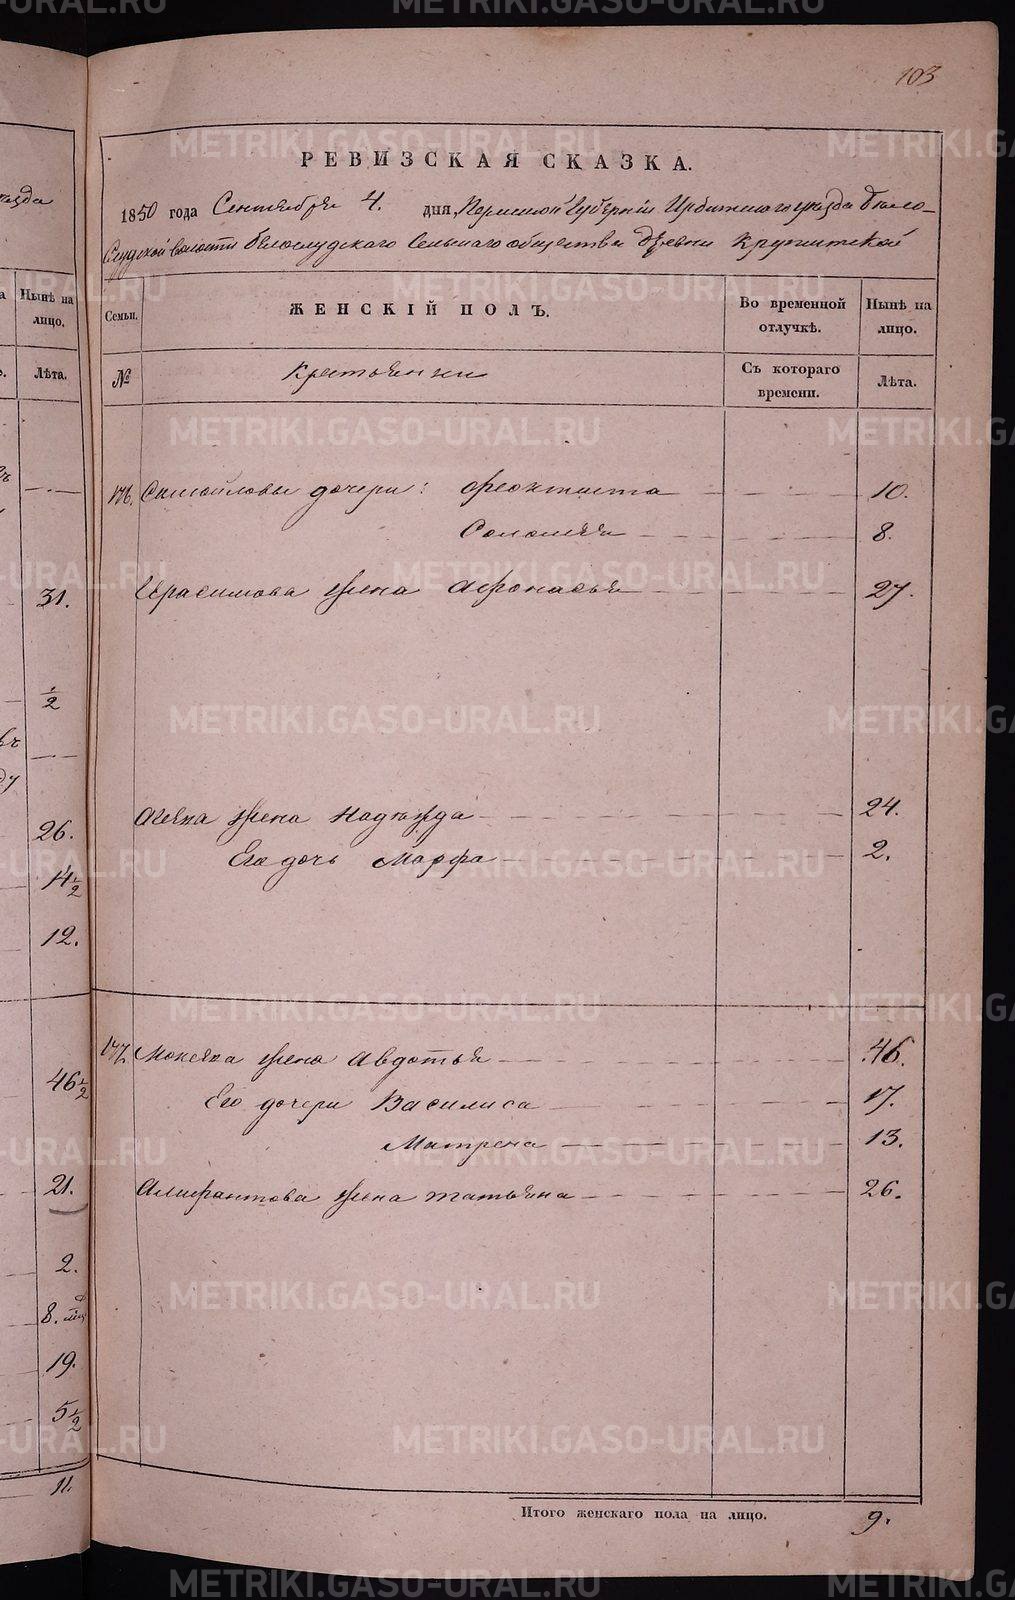 103
РЕВИЗСКАЯ СКАЗКА.
1850 года Сентября 4. дня, Пермской Губерніи Ирбитскаго уѣзда Бело-
слудской волости Белослудскаго сельскаго общества деревни
Семьи. ЖЕНСКІЙ ПОЛЪ. Во временной отлучкѣ. Нынѣ на лицо.
№ Крестьянки Съ котораго времени. Лѣта.
176. Самойловы дочери: Феоктиста 10.
Соломея 8.
Герасимова жена Афонасья 27.
жена Надежда 24.
Его дочь Марфа 2.
177. Мокеева жена Авдотья 46.
Его дочери Василиса 17.
Матрена 13.
Алифантова жена Татьяна 26.
Итого женскаго пола на лицо. 9.
уѣзда
Нынѣ на лицо.
Лѣта.
31.
1/2
26.
14 1/2
12.
46 1/2
21.
2.
8.
19.
5 1/2
11.
METRIKI.GASO-URAL.RU